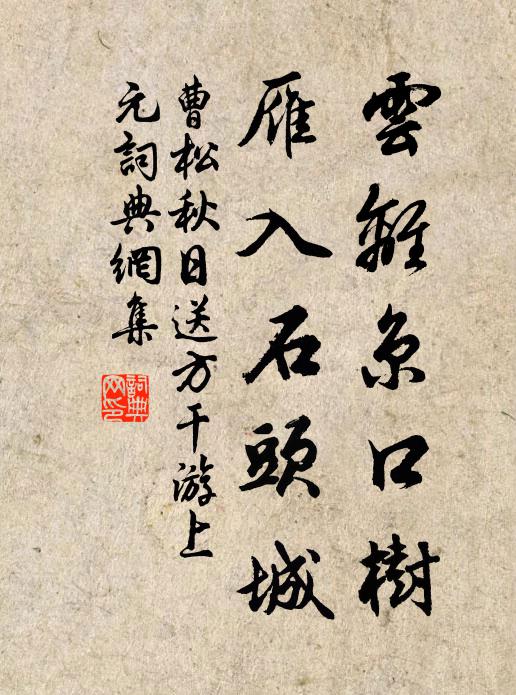 雲離京口樹
雁入石頭城
曹松秋日送方干游上
元詞典網集
詞典网印